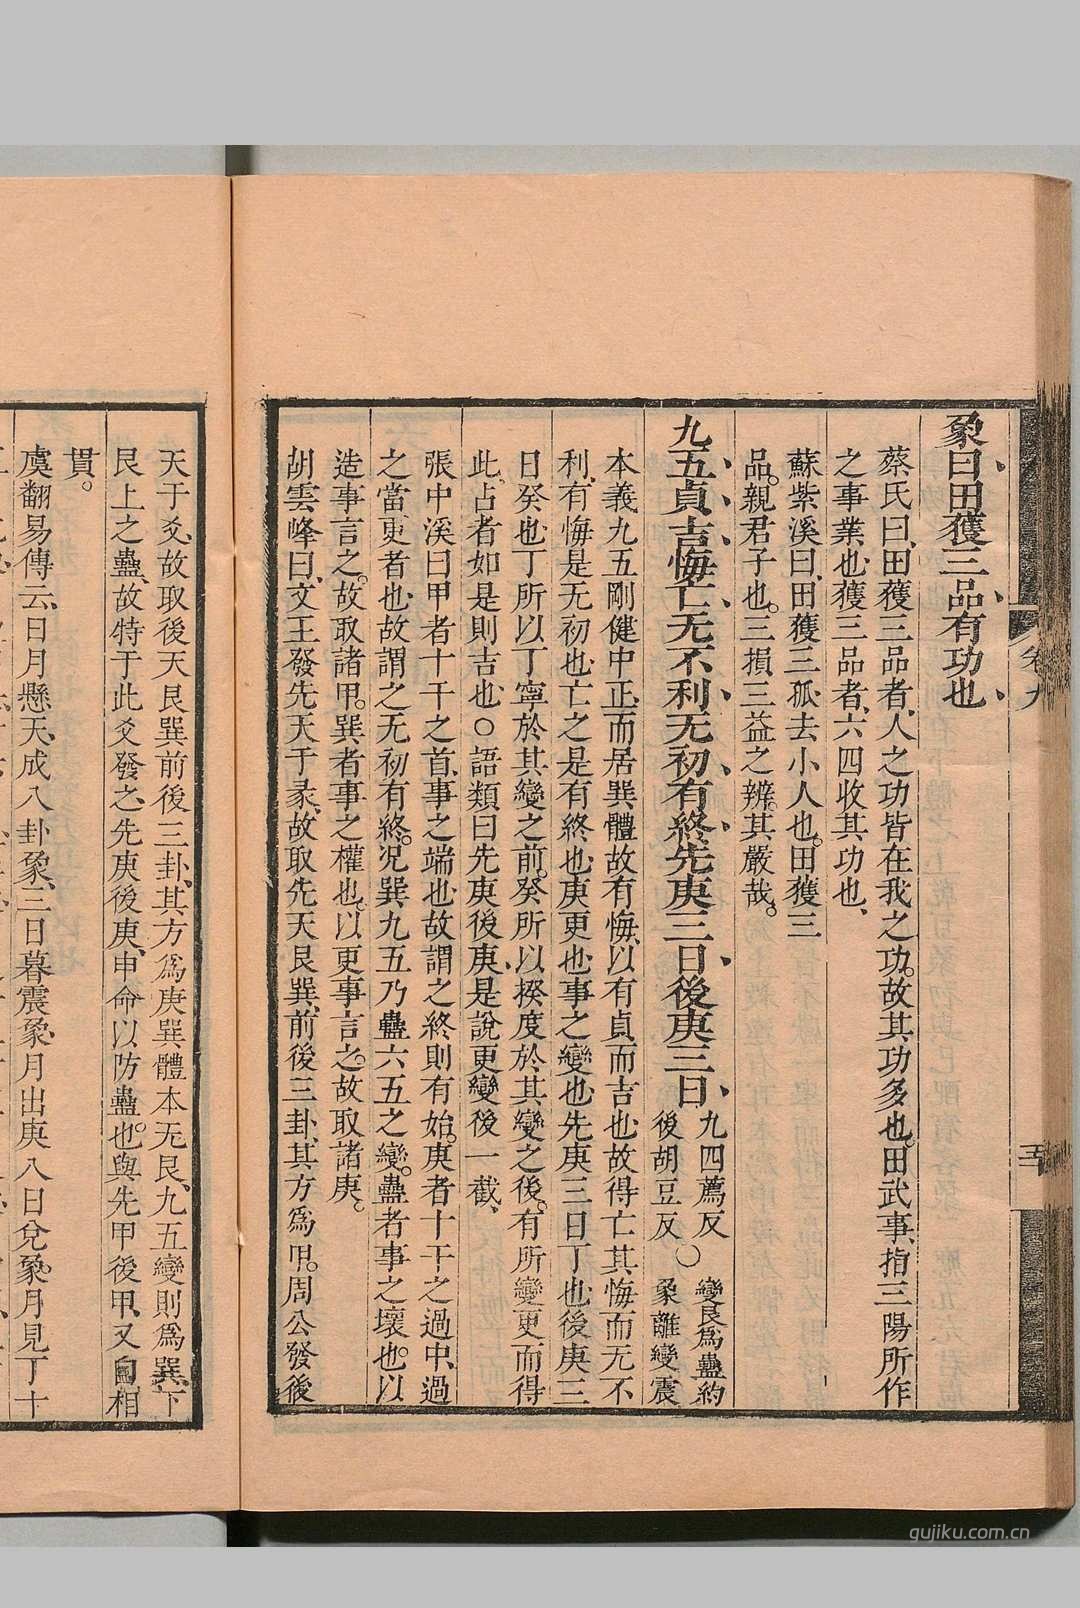 象曰田獲三品有功也
蔡氏曰田獲三品者人之功皆在我之功故其功多也田武事指三陽所作
之事業也獲三品者六四收其功也
蘇紫溪曰田獲三孤去小人也田獲三
品親君子也三損三益之辨其嚴哉
九五貞吉悔亡无不利无初有終先庚三日後庚三日
九四薦反
後胡豆反
○
變艮為蠱約
象離變震
本義九五剛健中正而居巽體故有悔以有貞而吉也故得亡其悔而无不
利有悔是无初也亡之是有終也庚更也事之變也先庚三日丁也後庚三
日癸也丁所以丁寧於其變之前癸所以揆度於其變之後有所變更而得
此占者如是則吉也○語類曰先庚後庚是說更變後一截
張中溪曰甲者十干之首事之端也故謂之終則有始庚者十干之過中過
之當更者也故謂之无初有終況巽九五乃蠱六五之變蠱者事之壞也以
造事言之故取諸甲巽者事之權也以更事言之故取諸庚
胡雲峰曰文王發先天于彖故取先天艮巽前後三卦其方為甲周公發後
天于爻故取後天艮巽前後三卦其方為庚巽體本无艮九五變則為巽下
艮上之蠱故特于此爻發之先庚後庚申命以防蠱也與先甲後甲又自相
貫
虞翻易傳云日月懸天成八卦象三日暮震象月出庚八日兌象月見丁十
卷九
gujiku.com.cn